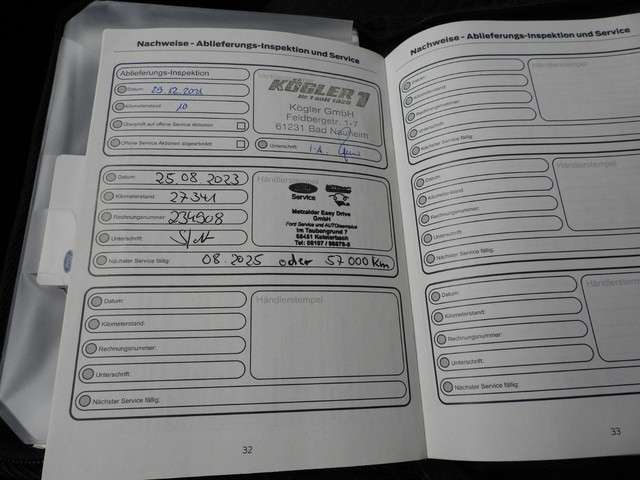 Nachweise - Ablieferungs-Inspektion und Service
Ablieferungs-Inspektion
Datum:
Kilometerstand: 10
Überprüft auf offene Service Aktionen
Offene Service Aktionen abgearbeitet
KÖGLER 1
Kögler GmbH
Feldbergstr. 1-7
61231 Bad Nauheim
Unterschrift:
Datum: 25.08.2023
Kilometerstand: 27341
Rechnungsnummer: 234908
Unterschrift:
Nächster Service fällig: 08.2025 oder 57 000 Km
Händlerstempel
Service
Metzelder Easy Drive
GmbH
Ford Service und
Im Taubengrund 7
65451 Kelsterbach
Datum:
Kilometerstand:
Rechnungsnummer:
Unterschrift:
Nächster Service fällig:
Händlerstempel
32
Nachweise - Ablieferungs-Inspektion und Service
Datum:
Kilometerstand:
Rechnungsnummer:
Unterschrift:
Nächster Service fällig:
Händlerstempel
Datum:
Kilometerstand:
Rechnungsnummer:
Unterschrift:
Nächster Service fällig:
Händlerstempel
Datum:
Kilometerstand:
Rechnungsnummer:
Unterschrift:
Nächster Service fällig:
Händlerstempel
33